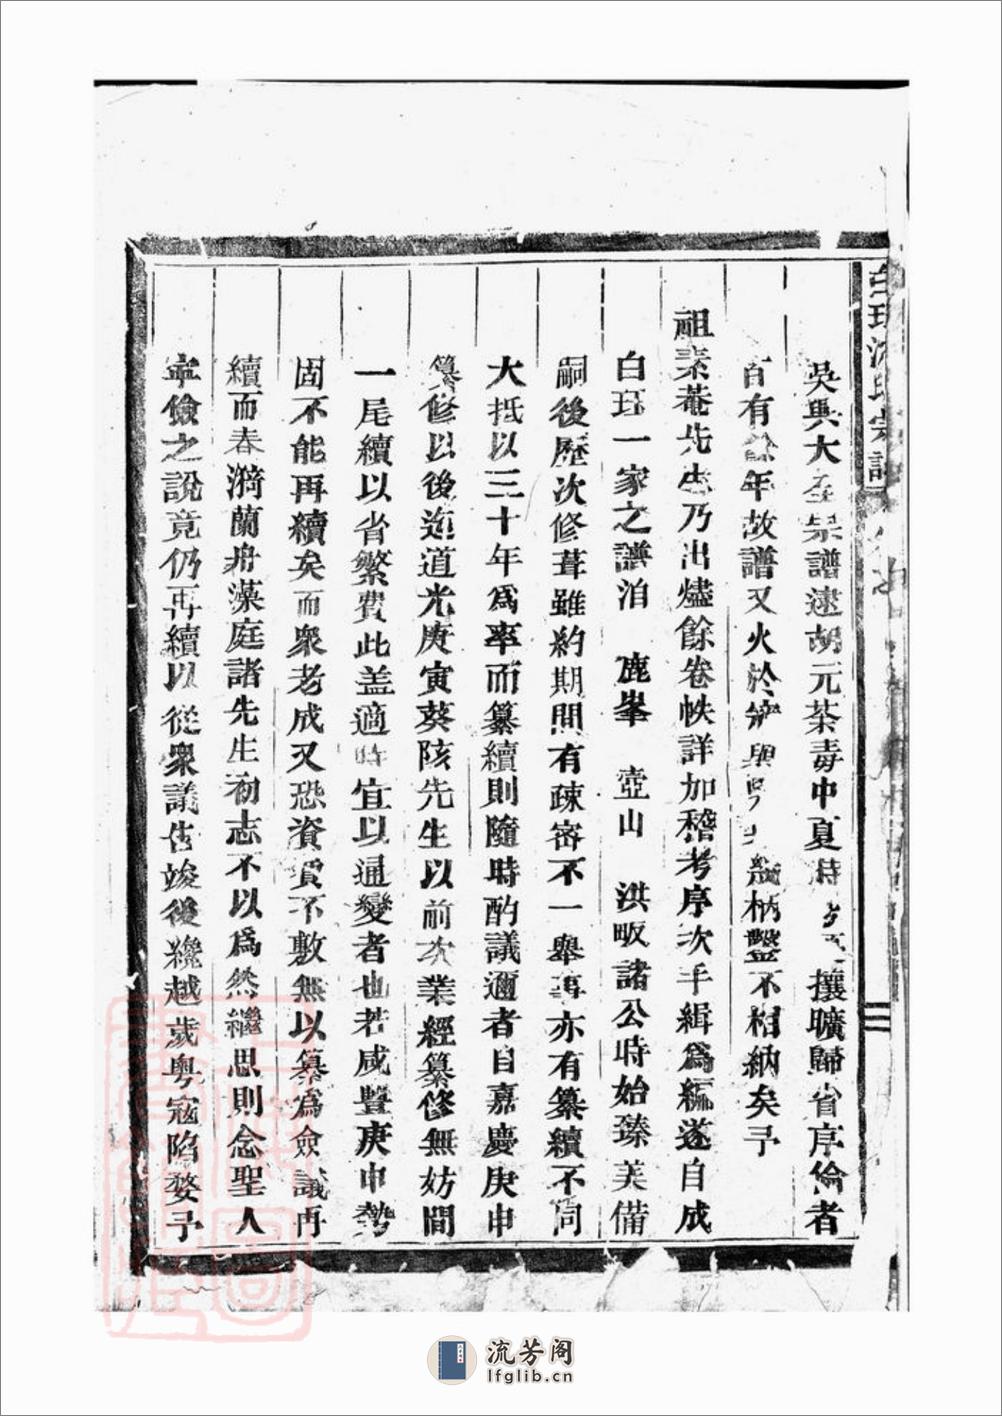 吳興大宗譜逮胡元荼毒中夏時攘曠歸省序倫者
百有餘年故譜又火於枘鑿不相納矣予
祖素菴先生乃出燼餘卷帙詳加稽考序次手緝為編遂自成
白珏一家之譜洎 鹿峯 壺山 洪畈諸公時始臻美備
嗣後歷次修葺雖約期間有疎密不一舉事亦有纂續不同
大抵以三十年為率而纂續則隨時酌議邇者自嘉慶庚申
纂修以後迄道光庚寅葵陔先生以前次業經纂修無妨間
一尾續以省繁費此盖適時宜以通變者也若咸豐庚申勢
固不能再續矣而衆老成又恐資費不敷無以纂為僉議再
續而春漪蘭舟藻庭諸先生初志不以為然繼思則念聖人
寧儉之說竟仍再續以從衆議告竣後纔越歲粤寇陷婺予
白珏沈氏宗譜
流芳阁
lfglib.cn